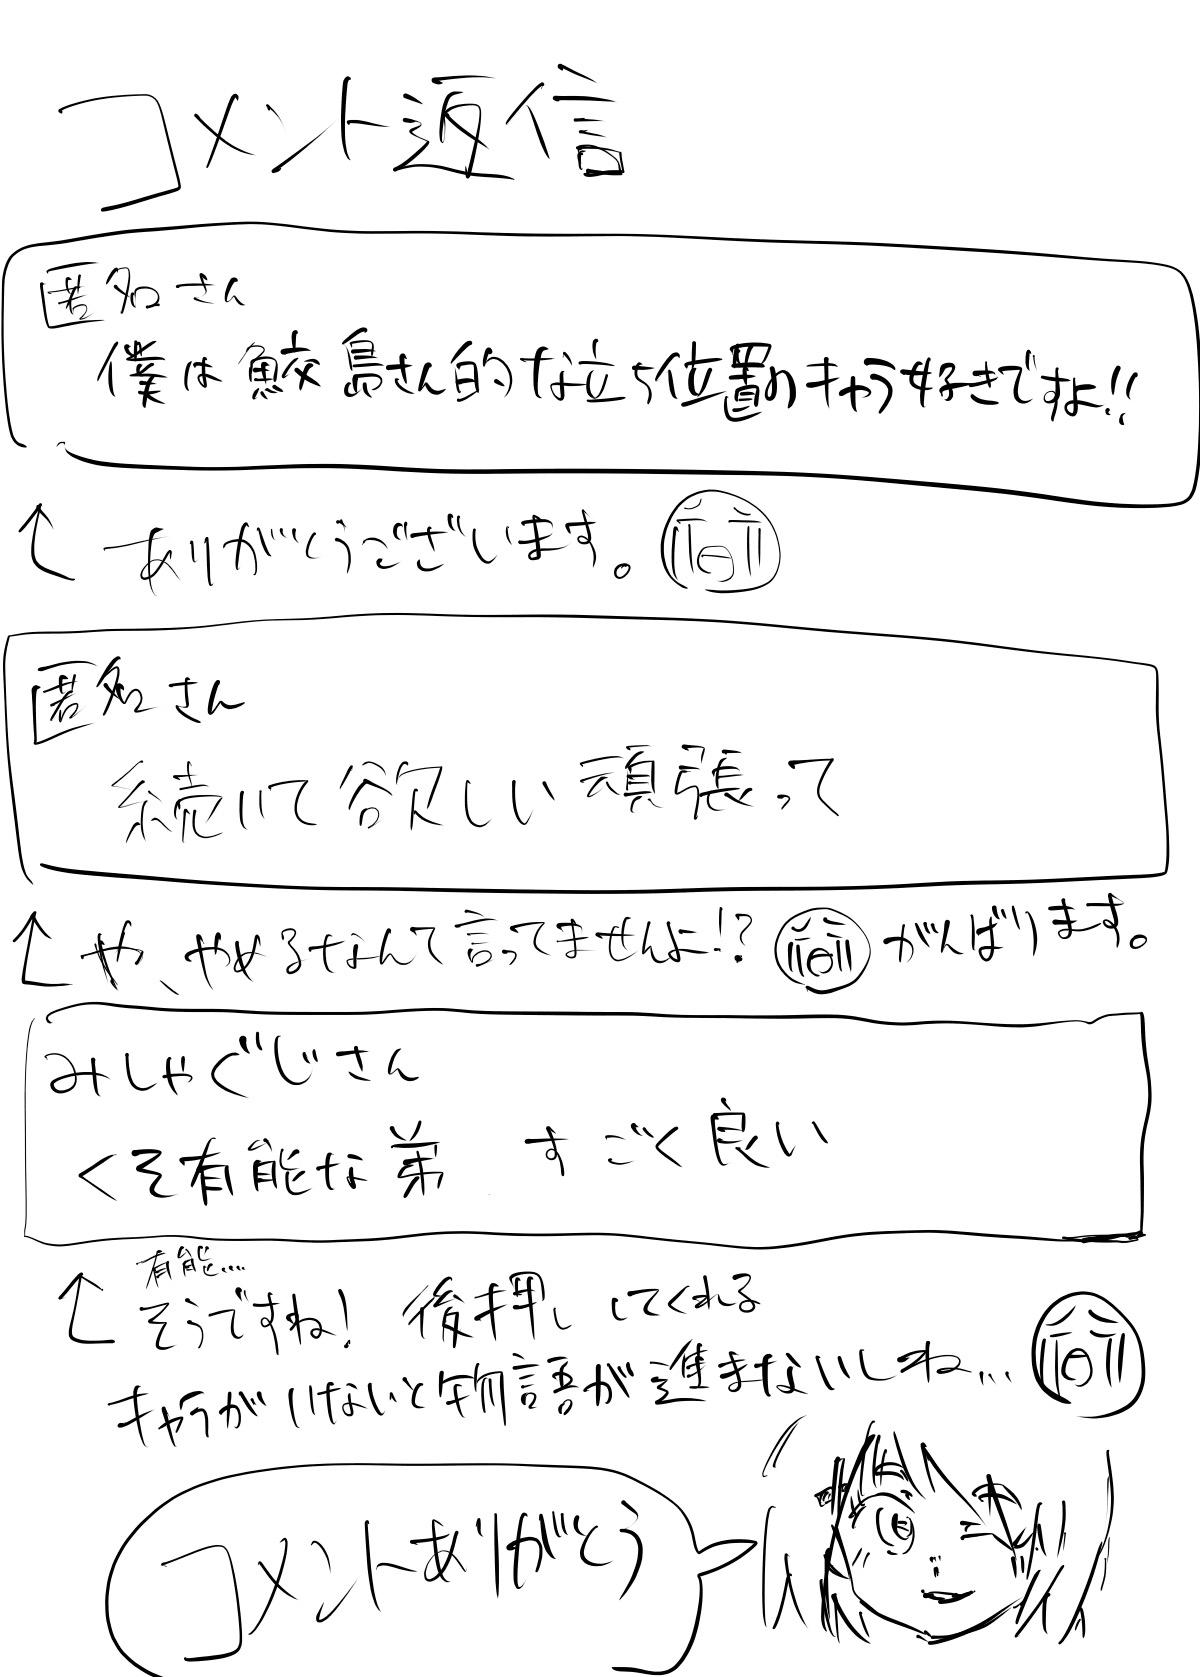 コメント返信
匿名さん
僕は鮫島さん的な立ち位置のキャラ好きですよ!!
ありがとうございます。
匿名さん
続いて欲しい頑張って
や、やめるなんて言ってませんよ!? がんばります。
みしゃぐじさん
くそ有能な弟 すごく良い
有能....
そうですね! 後押ししてくれる
キャラがいないと物語が進まないしね...
コメントありがとう